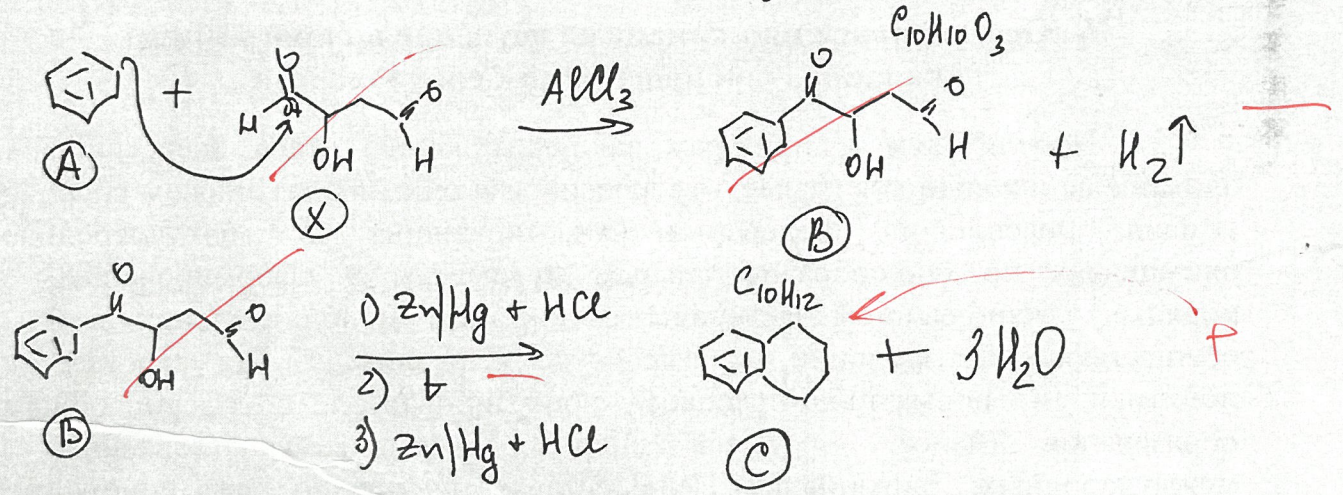 C10H10O3
A + O H OH O H X AlCl3 → O OH O H B + H2↑
O OH O H B 1) Zn/Hg + HCl 2) t 3) Zn/Hg + HCl → C10H12 C + 3H2O P